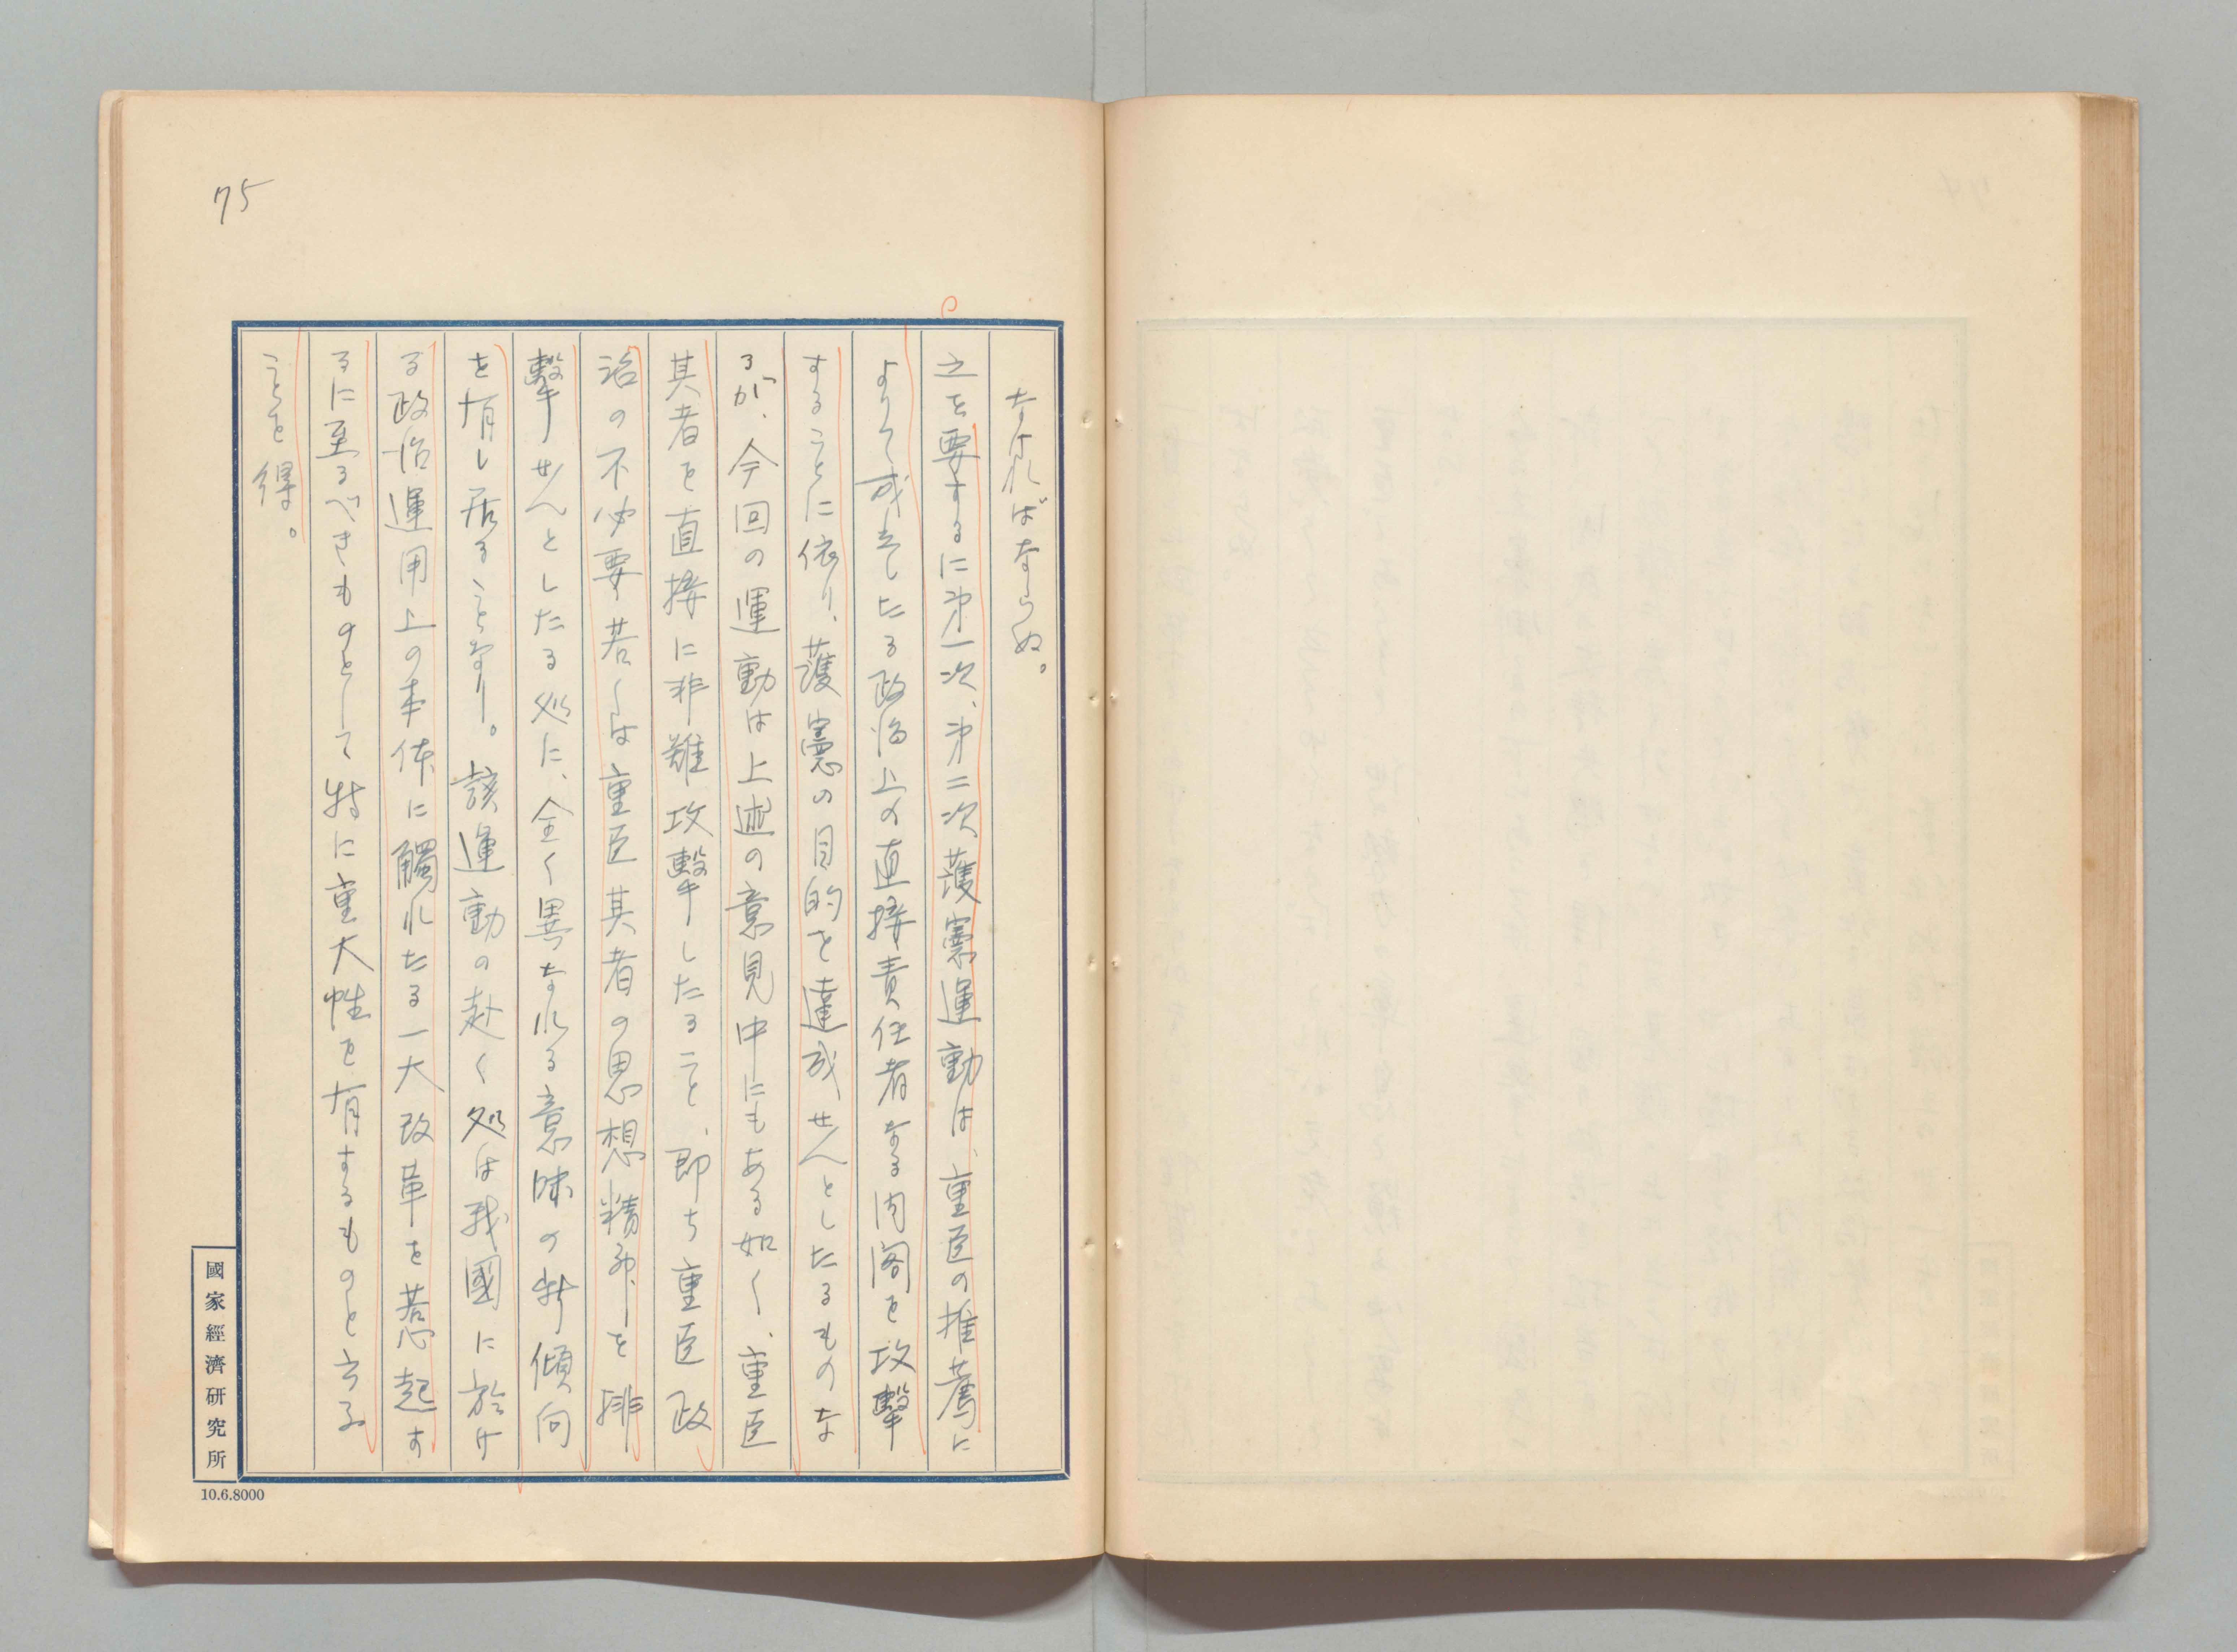 75
なければならぬ。
之を要するに第一次、第二次護憲運動は、重臣の推薦に
よりて成立したる政治上の直接責任者なる内閣を攻撃
することに依り、護憲の目的を達成せんとしたるものな
るが、今回の運動は上述の意見中にもある如く、重臣
其者を直接に非難攻撃したること、即ち重臣政
治の不必要若くは重臣其者の思想精神を排
撃せんとしたる処に、全く異なれる意味の新傾向
を有し居ることなり。該運動の赴く処は我國に於け
る政治運用上の本体に觸れたる一大改革を惹起す
るに至るべきものとして特に重大性を有するものと云ふ
ことを得。
國家經濟研究所
10.6.8000